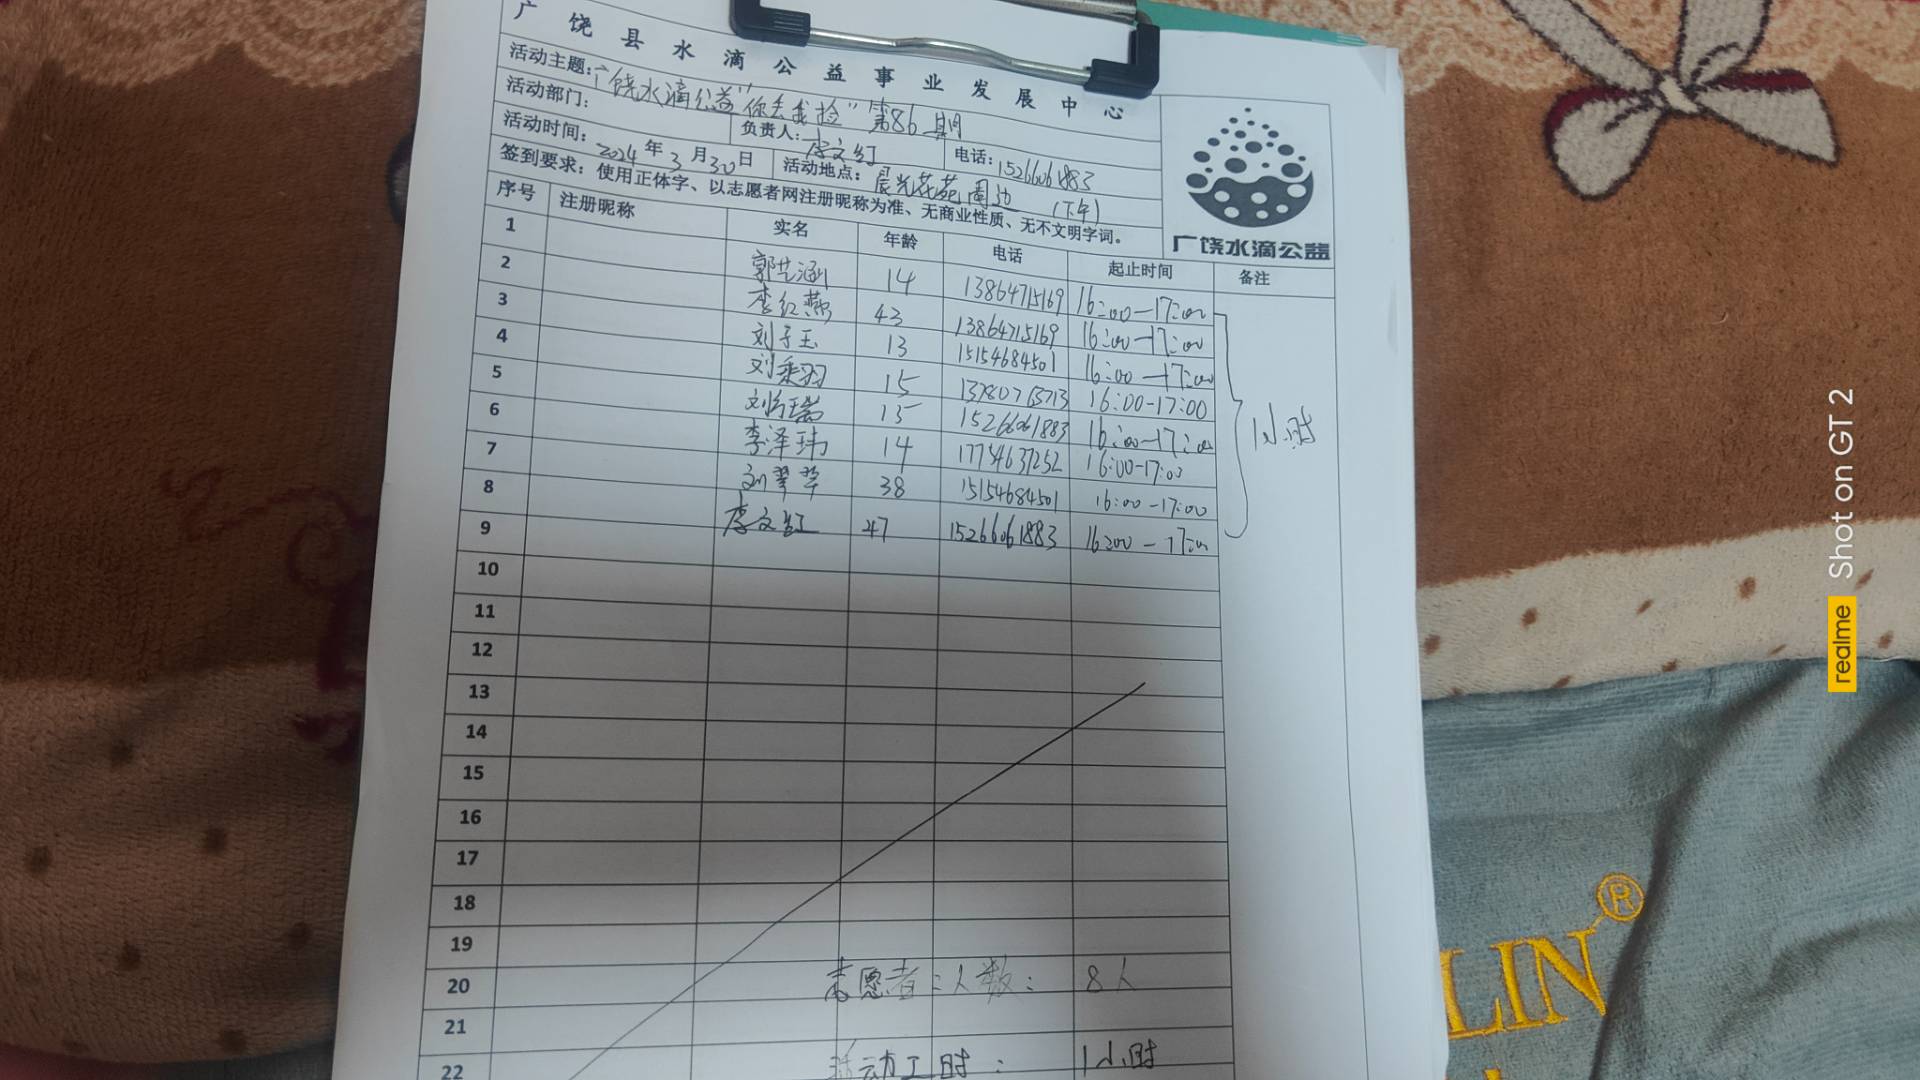 广饶县水滴公益事业发展中心
活动主题：广饶水滴公益“你丢我捡”第86期
活动部门： 负责人：李文红 电话：15266061883
活动时间：2024年3月30日 活动地点：晨光花苑周边（下午）
签到要求：使用正体字、以志愿者网注册昵称为准、无商业性质、无不文明字词。
广饶水滴公益
序号 注册昵称 实名 年龄 电话 起止时间 备注
1 郭艺涵 14 13864715169 16:00—17:00
2 李红燕 43 13864715169 16:00—17:00
3 刘子玉 13 15154684501 16:00—17:00
4 刘乘羽 15 13780763713 16:00-17:00
5 刘行瑞 15 15266061883 16:00—17:00
6 李泽玮 14 17754637252 16:00-17:00
7 刘翠苹 38 15154684501 16:00-17:00
8 李文红 47 15266061883 16:00—17:00
1小时
9
10
11
12
13
14
15
16
17
18
19
20 志愿者：人数：8人
21
22 活动工时：1小时
LIN®
realme Shot on GT 2